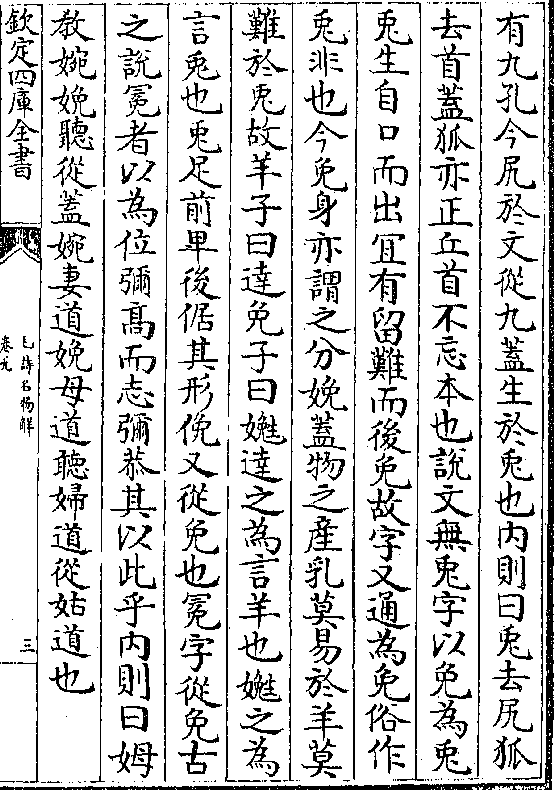 有九孔今尻於文從九蓋生於兎也内則曰兎去尻狐
去首蓋狐亦正丘首不忘本也說文無兎字以免為兎
兎生自口而出宜有留難而後免故字又通為免俗作
兎非也今免身亦謂之分娩蓋物之産乳莫易於羊莫
難於兎故羊子曰達免子曰㜶達之為言羊也㜶之為
言兎也兎足前卑後倨其形俛又從免也冕字從免古
之說冕者以為位彌髙而志彌恭其以此乎内則曰姆
敎婉娩聽從蓋婉妻道娩母道聽婦道從姑道也
欽定四庫全書
毛詩名物解
卷九
三